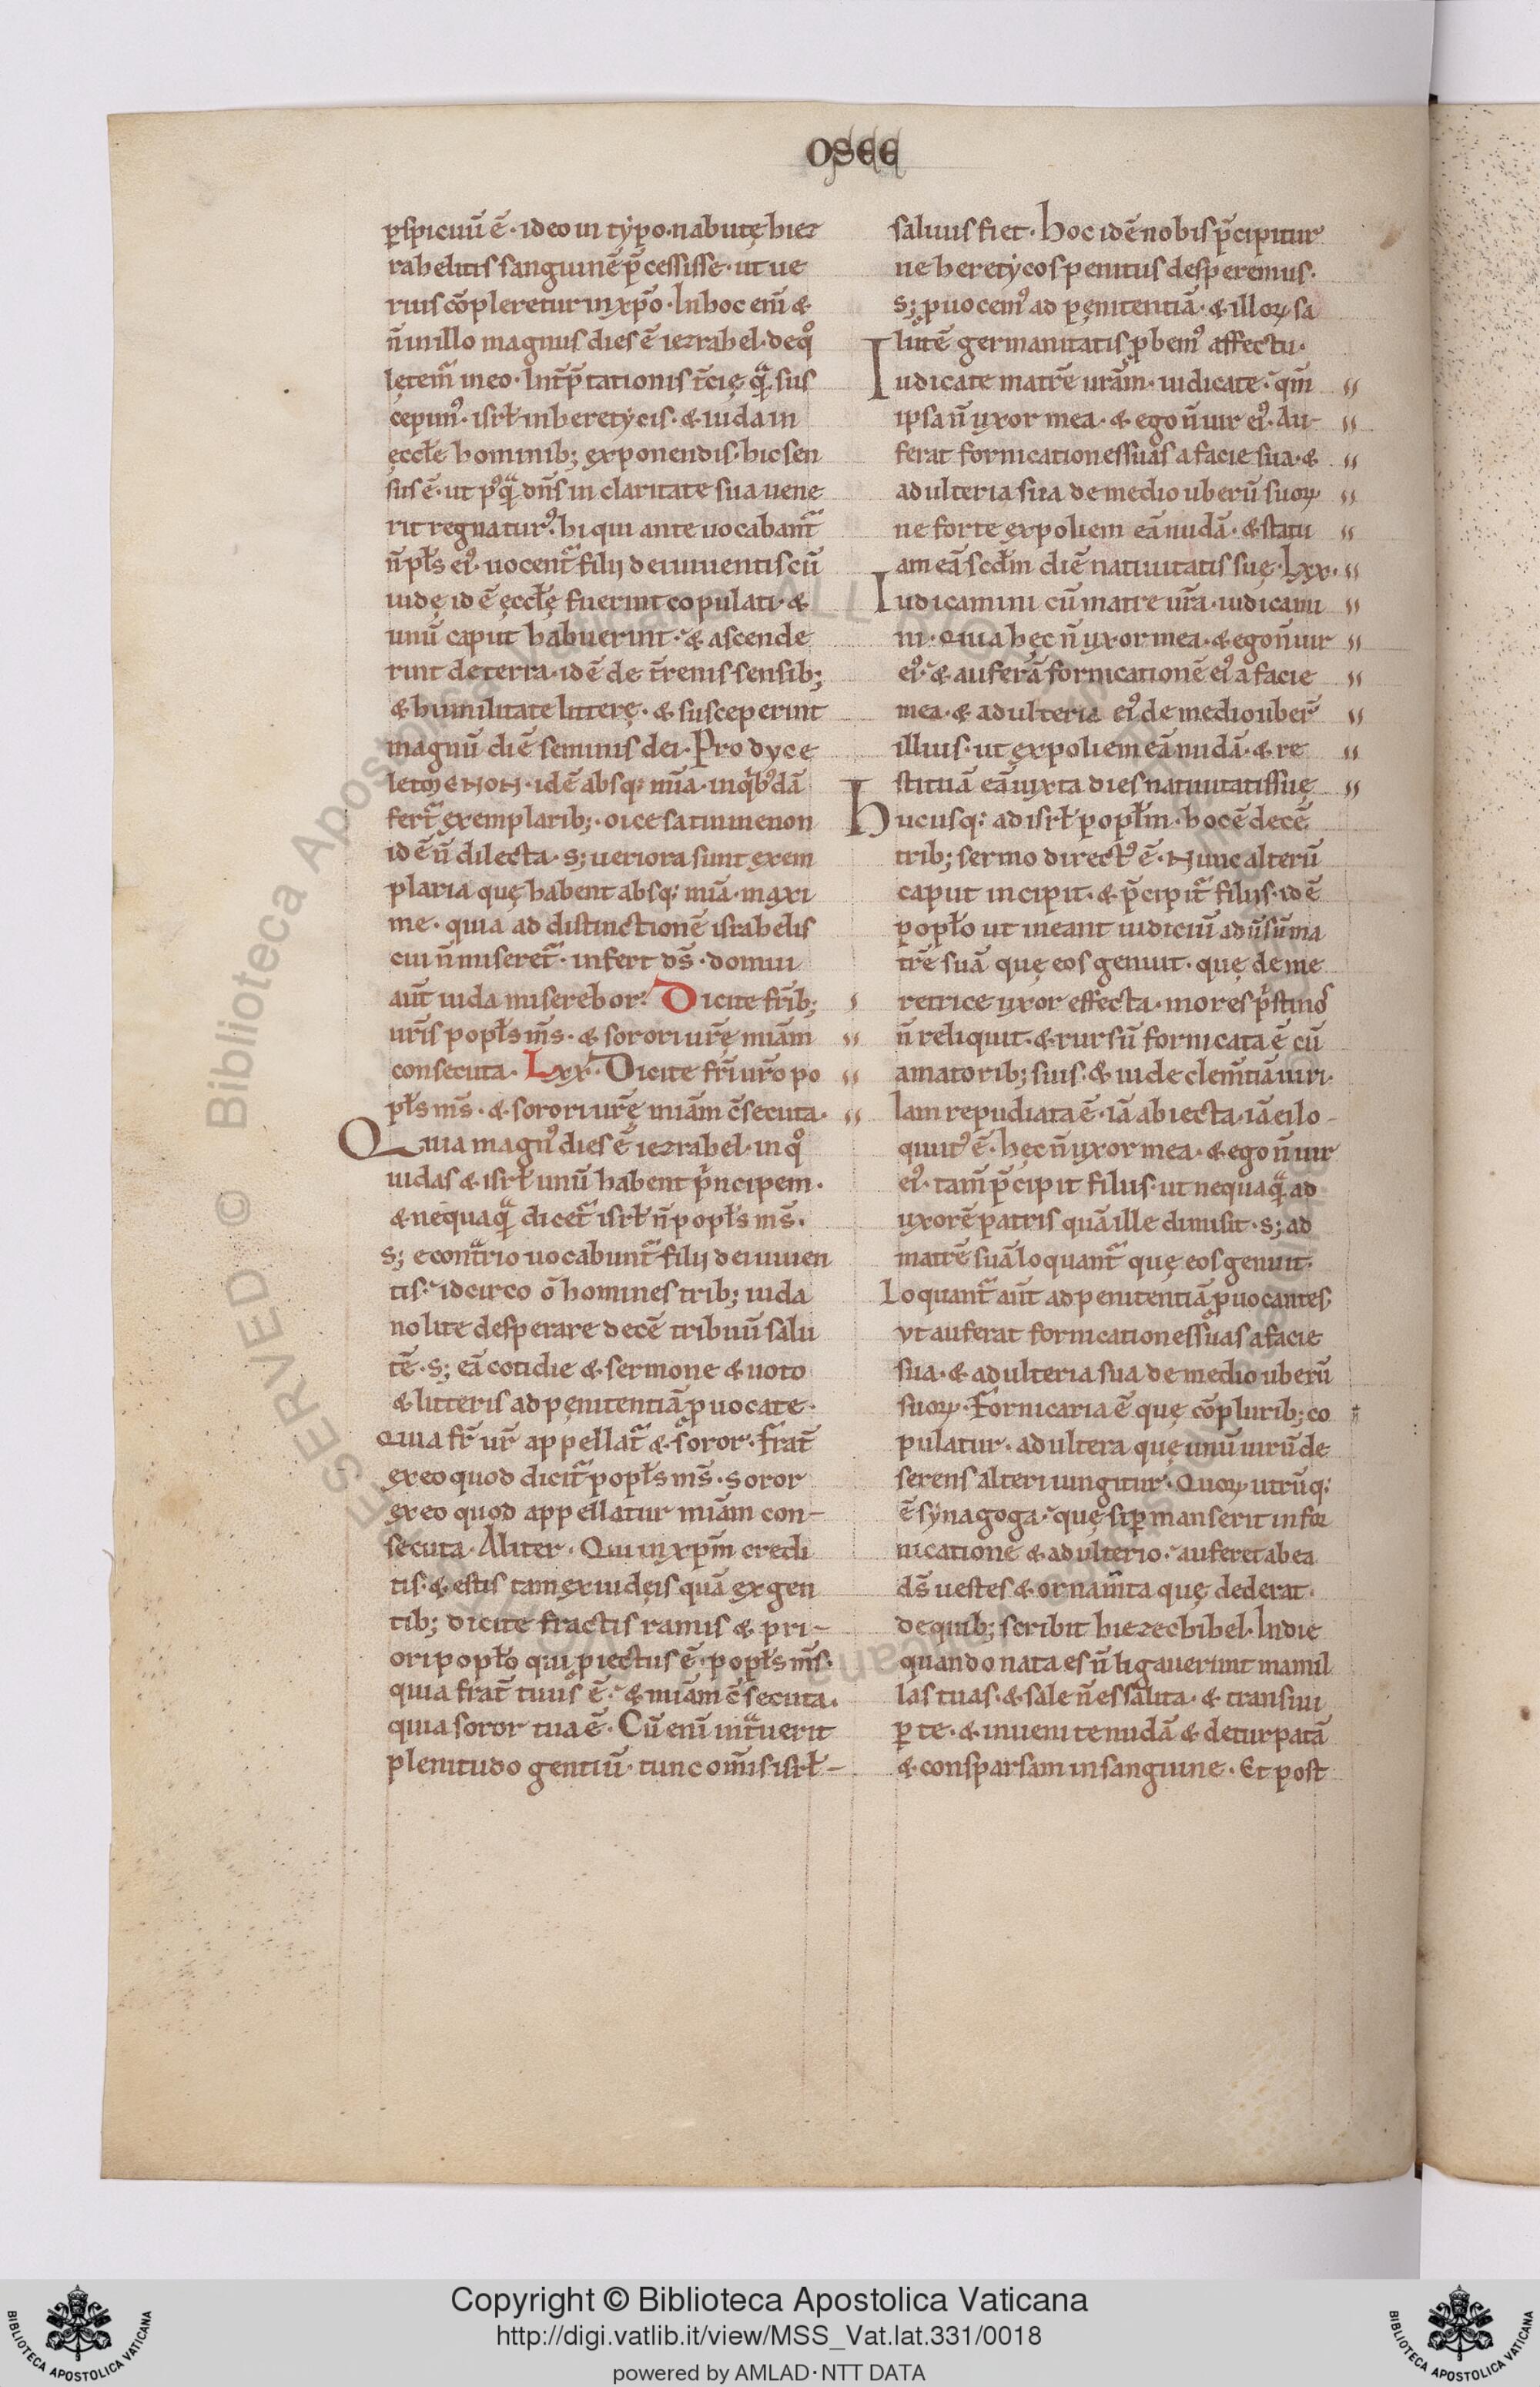 OSEE
ꝑspicuũ ẽ· ideo in typo·nabutę hiez
rahelitis sanguinẽ p̃cessisse· ut ue
rius cõpleretur in xp̃o· In hoc eni̅ &
ñ in illo magnus dies ẽ iezrahel· de qͦ
lętem̃ in eo· Int̃p̃tationis t̃cię qͣ sus
cepimꝰ· isrł in heretycis· & iuda in
ęccłe hominib; exponendis· hic sen
sus ẽ· ut pꝰqͣ dñs in claritate sua uene
rit regnaturꝰ· hi qui ante uocabant̃
ñ pł's eiꝰ· uocent̃ filij dei uiuentis cũ
iudę id ẽ ęccłę fuerint copulati· &
unũ caput habuerint·' & ascende
rint de terra· id ẽ de t̃renis sensib;
& humilitate litterę· & susceperint
magnũ diẽ seminis dei· Pro dyce
letmenon· id ẽ absq; mĩa· in qͥbꝰdã
fert̃ exemplarib;· oice satinmenon
id ẽ ñ dilecta· s; ueriora sunt exem
plaria quę habent absq; mĩa· maxi
me· quia ad distinctionẽ israhelis
cui ñ miseret̃· infert d̃s· domui
aũt iuda miserebor· Dicite fr̃ib;
ur̃is popł's m̃s· & sorori ur̃ę miãm
consecuta· Lxx· Dicite fr̃i ur̃o po
pł's m̃s· & sorori ur̃ę miãm c̃secuta·
Quia magnꝰ dies ẽ iezrahel· in qͦ
iudas & isrł unũ habent pͥncipem·
& nequaqͣ dicet̃ isrł ñ popł's m̃s·
s; econtͣrio uocabunt̃ filij dei uiuen
tis·' idcirco õ homines trib; iuda
nolite desperare decẽ tribuũ salu
tẽ· s; eã cotidie & sermone & uoto
& litteris ad pęnitentiã ꝓuocate·
Quia fr̃ ur̃ appellat̃ & soror· frat̃
ex eo quod dicit̃ popł's m̃s· Soror
ex eo quod appellatur miãm con-
secuta· Aliter· Qui in xp̃m credi
tis· & estis tam ex iudęis quã ex gen
tib; dicite fractis ramis & pri-
ori popło qui ꝓiectus ẽ· popł's m̃s·
quia frat̃ tuus ẽ·' & miãm c̃secuta·
quia soror tua ẽ· Cũ eni̅ intͣuerit
plenitudo gentiũ· tunc om̃is isrł-
saluus fiet· Hoc idẽ nobis p̃cipitur
ne heretycos penitus desperemus·
s; ꝓuocemꝰ ad pęnitentiã· & illoꝝ sa
lutẽ germanitatis ꝓbemꝰ affectu·
Iudicate matrẽ ur̃am· iudicate·' qm̃
ipsa ñ uxor mea· & ego ñ uir eiꝰ· Au-
ferat fornicationes suas a facie sua· &
adulteria sua de medio uberũ suoꝝ
ne forte expoliem eã nudã· & statu
am eã scđm diẽ natiuitatis suę· Lxx·
Iudicamini cũ matre ur̃a· iudicami
ni· Quia hęc ñ uxor mea· & ego ñ uir
eiꝰ·' & auferã fornicationẽ eiꝰ a facie
mea· & adulteria eiꝰ de medio uber̃
illius· ut expoliem eã nudã· & re
stituã eã iuxta dies natiuitatis suę
Hucusq; ad isrł popłm· hoc ẽ decẽ
trib; sermo directꝰ ẽ· Nunc alterũ
caput incipit· & p̃cipit̃ filijs· id ẽ
popło ut ineant iudiciũ aduersũ ma
trẽ suã quę eos genuit· quę de me
retrice uxor effecta· mores pͥstinos
ñ reliquit· & rursũ fornicata ẽ cũ
amatorib; suis· & iude clem̃tiã uiri·
Iam repudiata ẽ· iã abiecta· iã ei lo-
quutꝰ ẽ· hęc ñ uxor mea· & ego ñ uir
eiꝰ· tam̃ p̃cipit filiis· ut nequaqͣ ad
uxorẽ patris quã ille dimisit· s; ad
matrẽ suã loquant̃ quę eos genuit·
Loquant̃ aũt ad penitentiã ꝓuocantes·
ut auferat fornicationes suas a facie
sua· & adulteria sua de medio uberũ
suoꝝ· Fornicaria ẽ quę cõplurib; co
pulatur· adultera quę unũ uirũ de
serens alteri iungitur· Quoꝝ utrũq;
ẽ synagoga·' quę si ꝑmanserit in for
nicatione & adulterio·' auferet ab ea
d̃s uestes & ornam̃ta quę dederat·
de quib; scribit hiezechihel· In die
quando nata es ñ ligauerunt mamil
las tuas· & sale ñ es salita· & transiui
ꝑ te· & inueni te nudã & deturpatã
& consparsam in sanguine· Et post
Copyright © Biblioteca Apostolica Vaticana
http://digi.vatlib.it/view/MSS_Vat.lat.331/0018
powered by AMLAD·NTT DATA
BIBLIOTECA APOSTOLICA VATICANA
BIBLIOTECA APOSTOLICA VATICANA